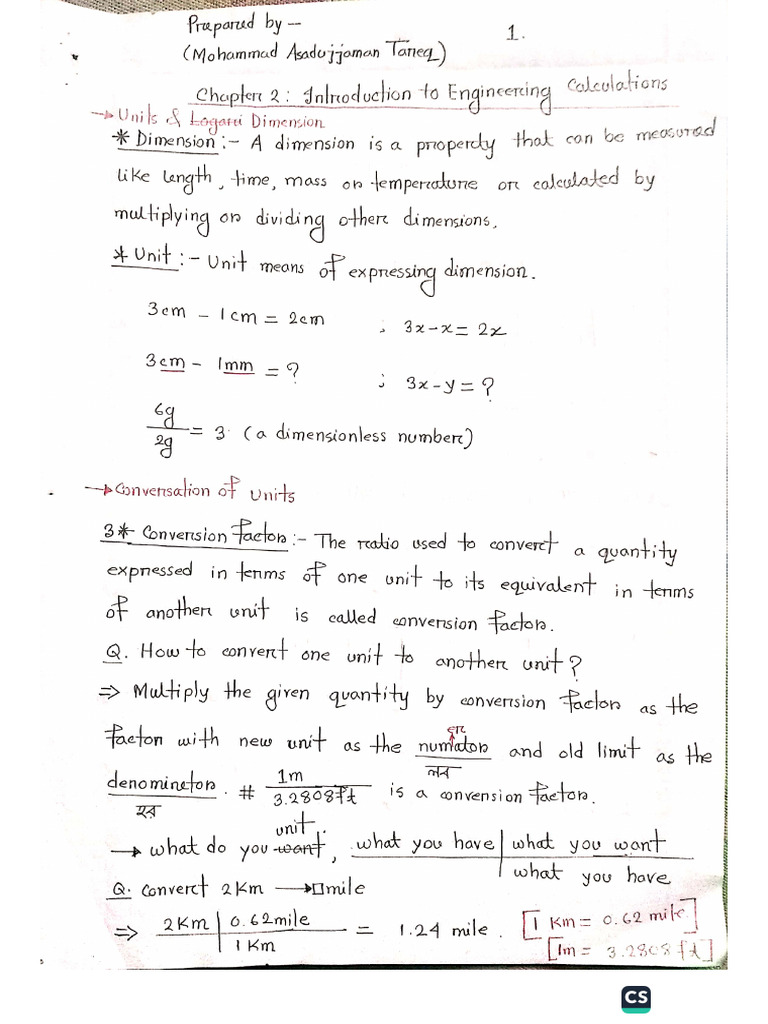 Prepared by –
1.
(Mohammad Asadujjaman Tareq)
Chapter 2: Introduction to Engineering Calculations
→ Units & Dimension
* Dimension :- A dimension is a property that can be measured
like length, time, mass or temperature or calculated by
multiplying or dividing other dimensions.
* Unit :- Unit means of expressing dimension.
3cm – 1cm = 2cm ; 3x-x= 2x
3cm – 1mm = ? ; 3x-y = ?
6g/2g = 3 (a dimensionless number)
→ Conversation of Units
3* Conversion factor :- The ratio used to convert a quantity
expressed in terms of one unit to its equivalent in terms
of another unit is called conversion factor.
Q. How to convert one unit to another unit?
⇒ Multiply the given quantity by conversion factor as the
er
factor with new unit as the numator and old limit as the
লব
denominetor. # 1m/3.2808ft is a conversion factor.
হর
unit.
→ what do you want, what you have | what you want
what you have
Q. Convert 2Km →□mile
⇒ 2Km | 0.62mile / 1Km = 1.24 mile. [1 Km = 0.62 mile]
[1m = 3.2808ft]
CS